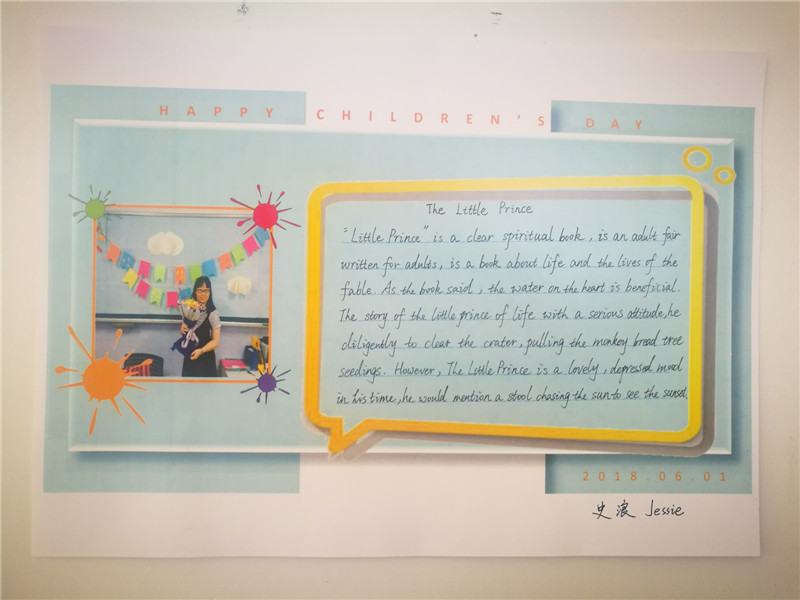 HAPPY CHILDREN'S DAY
The Little Prince
"Little Prince" is a clear spiritual book, is an adult fair
written for adults, is a book about life and the lives of the
fable. As the book said, the water on the heart is beneficial.
The story of the little prince of life with a serious attitude, he
diligently to clear the crater, pulling the monkey bread tree
seedings. However, The Little Prince is a lovely, depressed mood
in his time, he would mention a stool chasing the sun to see the sunset.
2018.06.01
史浪 Jessie